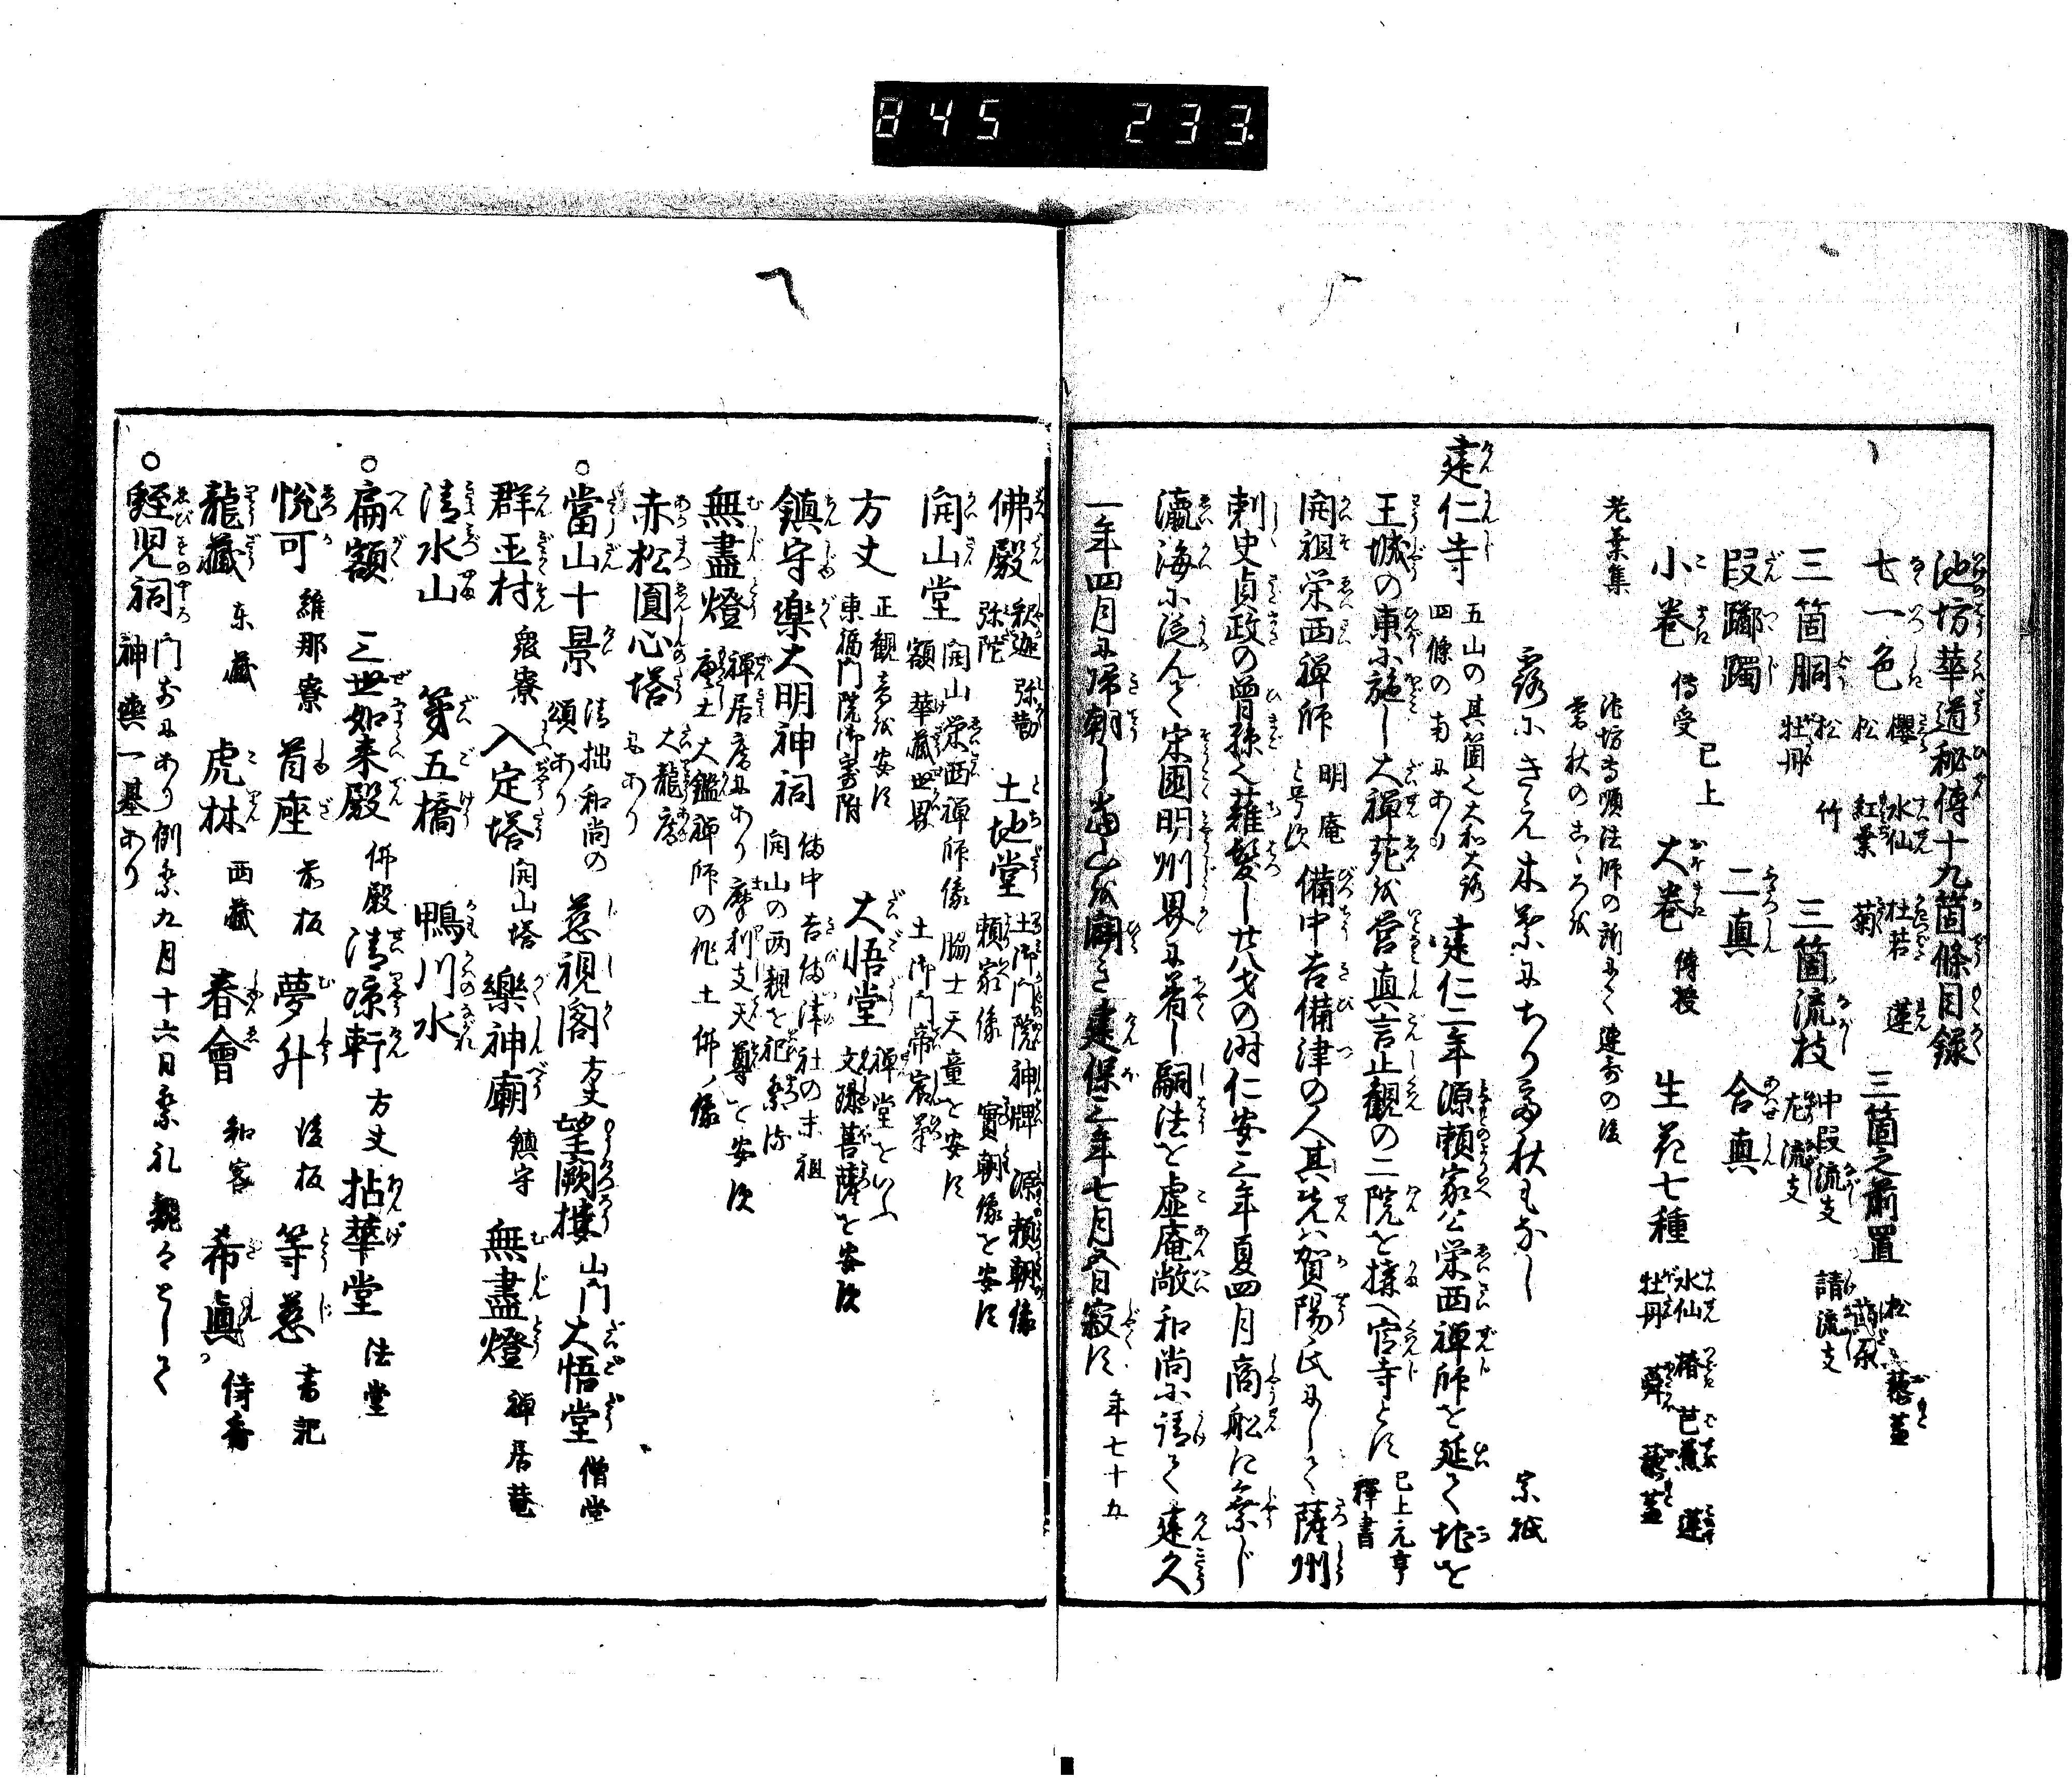 845 233
池坊華道秘傳十九箇條目録
七一色 櫻 水仙 杜若 蓮 松 紅葉 菊 三箇之前置 松
三箇胴 松 竹 牡丹 三箇流枝 中段流支 請流支
段躑躅 二真 合真
小巻 傳受 已上 大巻 傳授 生花七種 水仙 椿 芭蕉 蓮 牡丹
老葉集 池坊専順法師の所にて連哥の後
暮秋のこゝろを
露にきえ木葉にちりて秋もなし 宗祇
建仁寺 五山の其箇也大和大路四條の南にあり 建仁二年源頼家公栄西禅師を延て地を
王城の東に施し大禅苑を営真言止観の二院を搆へ官寺とす 已上元亨釋書
開祖栄西禅師 明庵と号す 備中吉備津の人其先ハ賀陽氏にして薩州
刺史貞政の曽孫也薙髪し廿八才の时仁安三年夏四月商舩に乗じ
瀛海に泛んで宋国明州界に着し嗣法を虚庵敞和尚に請て建久
二年四月に帰朝し當山を開き建保三年七月五日寂す 年七十五
佛殿 釈迦 弥勒 弥陀 土地堂 土御門院神牌 源頼朝像 頼家像 實朝像を安す
開山堂 開山栄西禅師像 脇士天童を安す 額 華蔵世界 土御門帝宸筆
方丈 正観音を安す 東福門院御寄附 大悟堂 禅堂をいふ 文殊菩薩を安次
鎮守樂大明神祠 備中吉備津社の末祖 開山の両親を祀祭る
無盡燈 禅居庵にあり摩利支天尊を安次 大鑑禅師の作土佛ノ像
赤松圓心塔 大龍庵にあり
○當山十景 清拙和尚の頌あり 慈視閣 方丈 望闕楼 山門 大悟堂 僧堂
群玉村 衆寮 入定塔 開山塔 樂神廟 鎮守 無盡燈 禅居菴
清水山 第五橋 鴨川水
○扁額 三世如来殿 佛殿 清凉軒 方丈 拈華堂 法堂
悦可 維那寮 首座 前板 夢升 後板 等慈 書記
龍藏 东藏 虎林 西藏 春會 知客 希眞 侍香
○蛭児祠 門前にあり例祭九月十六日祭礼 神輿一基あり